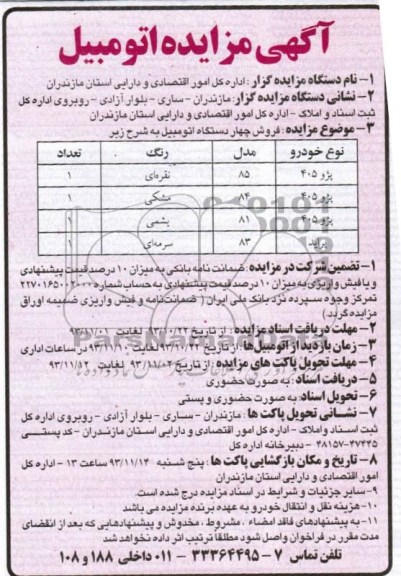 آگهی مزایده اتومبیل
۱- نام دستگاه مزایده گزار: اداره کل امور اقتصادی و دارایی استان مازندران
۲- نشانی دستگاه مزایده گزار: مازندران - ساری - بلوار آزادی - روبروی اداره کل
ثبت اسناد و املاک - اداره کل امور اقتصادی و دارایی استان مازندران
۳- موضوع مزایده: فروش چهار دستگاه اتومبیل به شرح زیر
نوع خودرو مدل رنگ تعداد
پژو ۴۰۵ ۸۵ نقره‌ای ۱
پژو ۴۰۵ ۸۴ مشکی ۱
پژو ۴۰۵ ۸۱ یشمی ۱
پراید ۸۳ سرمه‌ای ۱
۱- تضمین شرکت در مزایده: ضمانت نامه بانکی به میزان ۱۰ درصد قیمت پیشنهادی
و یا فیش واریزی به میزان ۱۰ درصد قیمت پیشنهادی به حساب شماره ۲۲۷۰۱۶۵۰۰۲۰۰۰
تمرکز وجوه سپرده نزد بانک ملی ایران ( ضمانت نامه و فیش واریزی ضمیمه اوراق
مزایده گردد)
۲- مهلت دریافت اسناد مزایده: از تاریخ لغایت ۹۳/۱۱/۰۱
۳- زمان بازدید از اتومبیل‌ها: از تاریخ لغایت ۹۳/۱۱/۱۰ در ساعات اداری
۴- مهلت تحویل پاکت های مزایده: از تاریخ ۹۳/۱۱/۰۲ لغایت ۹۳/۱۱/۱۲
۵- دریافت اسناد: به صورت حضوری
۶- تحویل اسناد: به صورت حضوری و پستی
۷- نشانی تحویل پاکت ها: مازندران - ساری - بلوار آزادی - روبروی اداره کل
ثبت اسناد و املاک - اداره کل امور اقتصادی و دارایی استان مازندران - کد پستی
۴۷۴۳۵-۴۸۱۵۷ - دبیرخانه اداره کل
۸- تاریخ و مکان بازگشایی پاکت ها: پنج شنبه ۹۳/۱۱/۱۴ ساعت ۱۳ - اداره کل
امور اقتصادی و دارایی استان مازندران
۹- سایر جزئیات و شرایط در اسناد مزایده درج شده است.
۱۰- هزینه نقل و انتقال خودرو به عهده برنده مزایده می باشد.
۱۱- به پیشنهادهای فاقد امضاء، مشروط، مخدوش و پیشنهادهایی که بعد از انقضای
مدت مقرر در فراخوان واصل شود مطلقا ترتیب اثر داده نخواهد شد
تلفن تماس ۷-۳۳۳۶۴۴۹۵-۰۱۱ داخلی ۱۸۸ و ۱۰۸